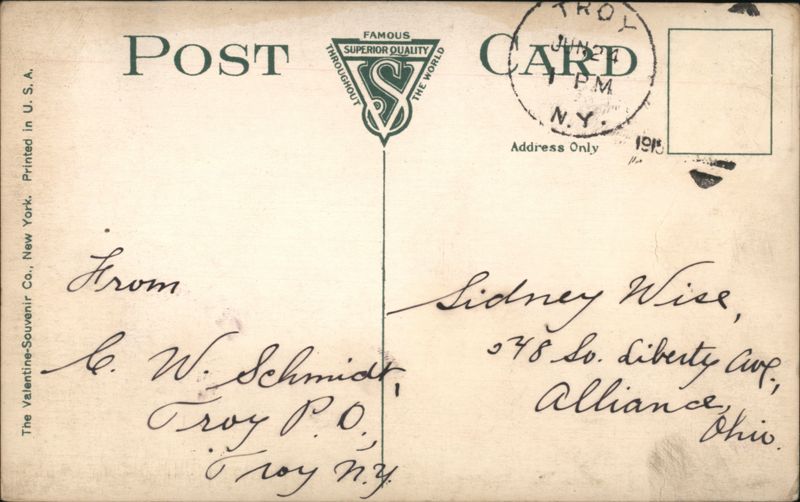 POST CARD
FAMOUS
SUPERIOR QUALITY
THROUGHOUT THE WORLD
VS
TROY
JUN 24
1 PM
N.Y.
Address Only
The Valentine-Souvenir Co., New York. Printed in U. S. A.
From
C. W. Schmidt,
Troy P. O.,
Troy N.Y.
Sidney Wise,
548 So. Liberty Ave.,
Alliance,
Ohio.